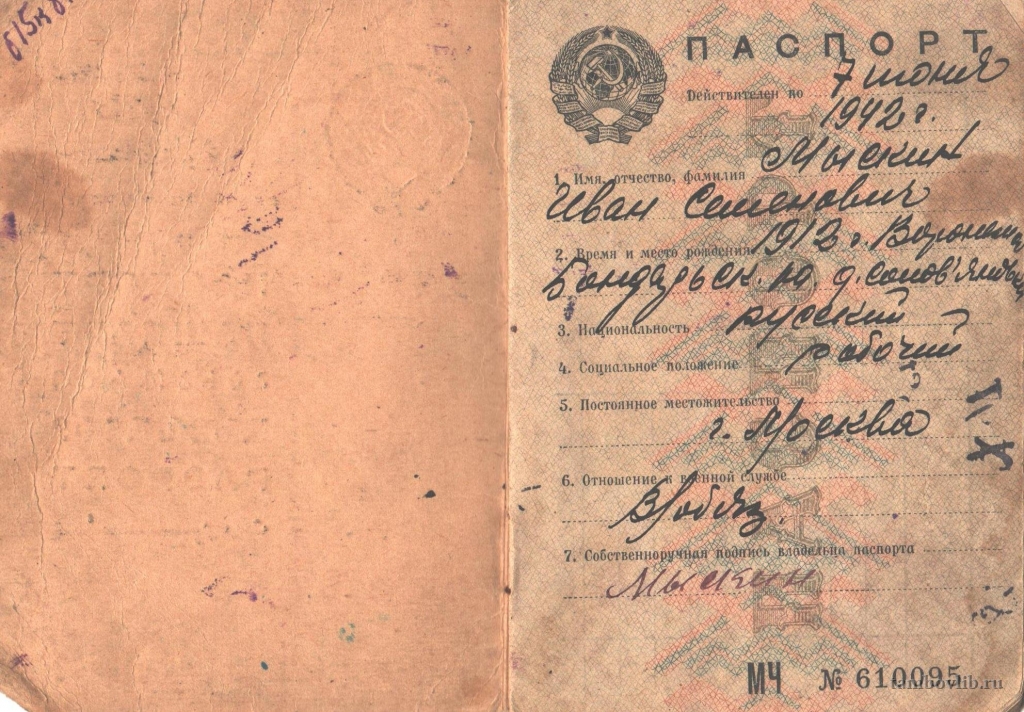 ПАСПОРТ
Действителен по 7 июня
1942 г.
1. Имя, отчество, фамилия Мыскин
Иван Семенович
2. Время и место рождения 1912 г.
Бондарьск. р.
3. Национальность русский
4. Социальное положение рабочий
5. Постоянное местожительство
г. Москва
6. Отношение к военной службе
В/обяз.
7. Собственноручная подпись владельца паспорта
Мыскин
МЧ № 610095
tambovlib.ru